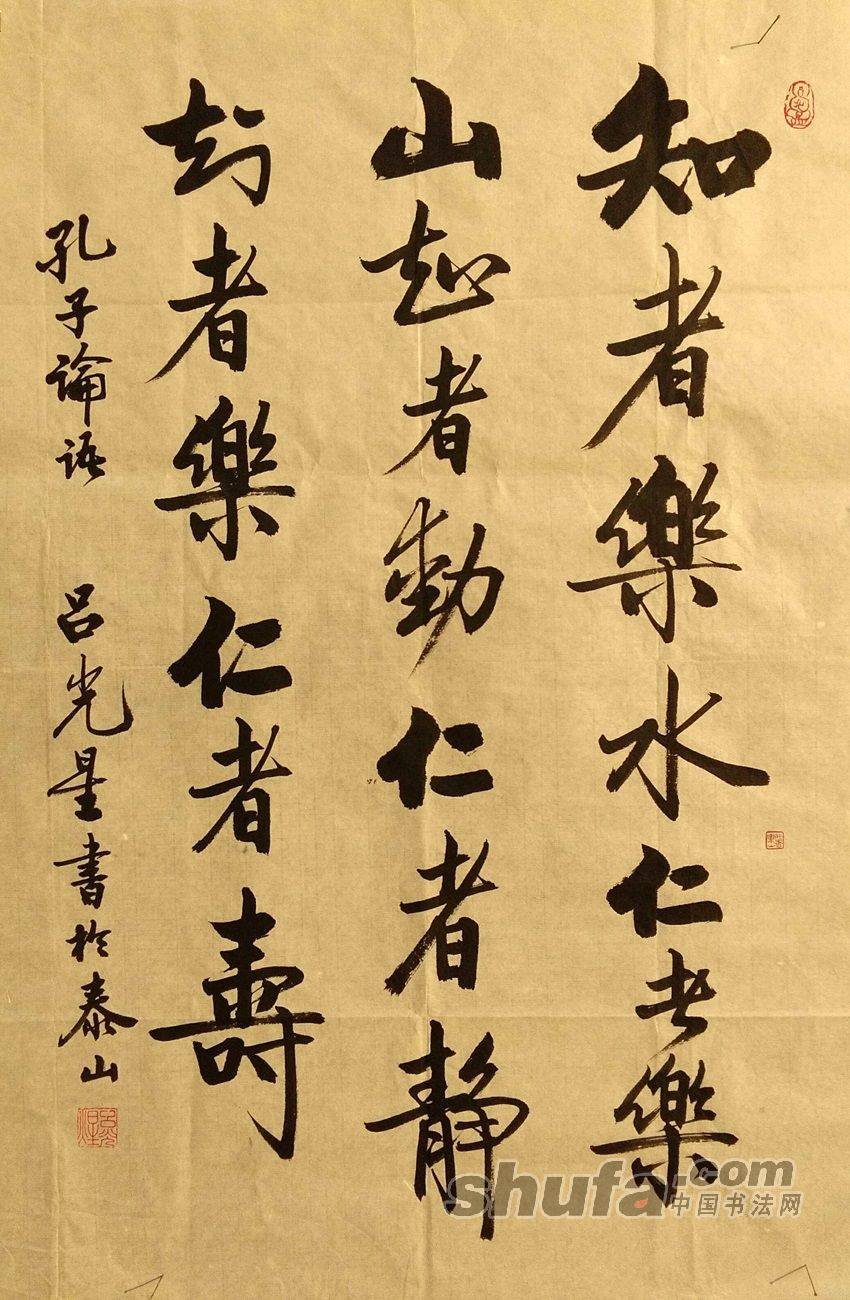 知者樂水仁者樂
山知者動仁者静
知者樂仁者壽
孔子論语 吕光星書於泰山
shufa.com
中国书法网